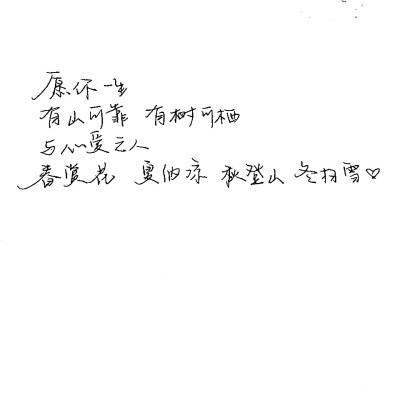 愿你一生
有山可靠 有树可栖
与心爱之人
春赏花 夏纳凉 秋登山 冬扫雪♡